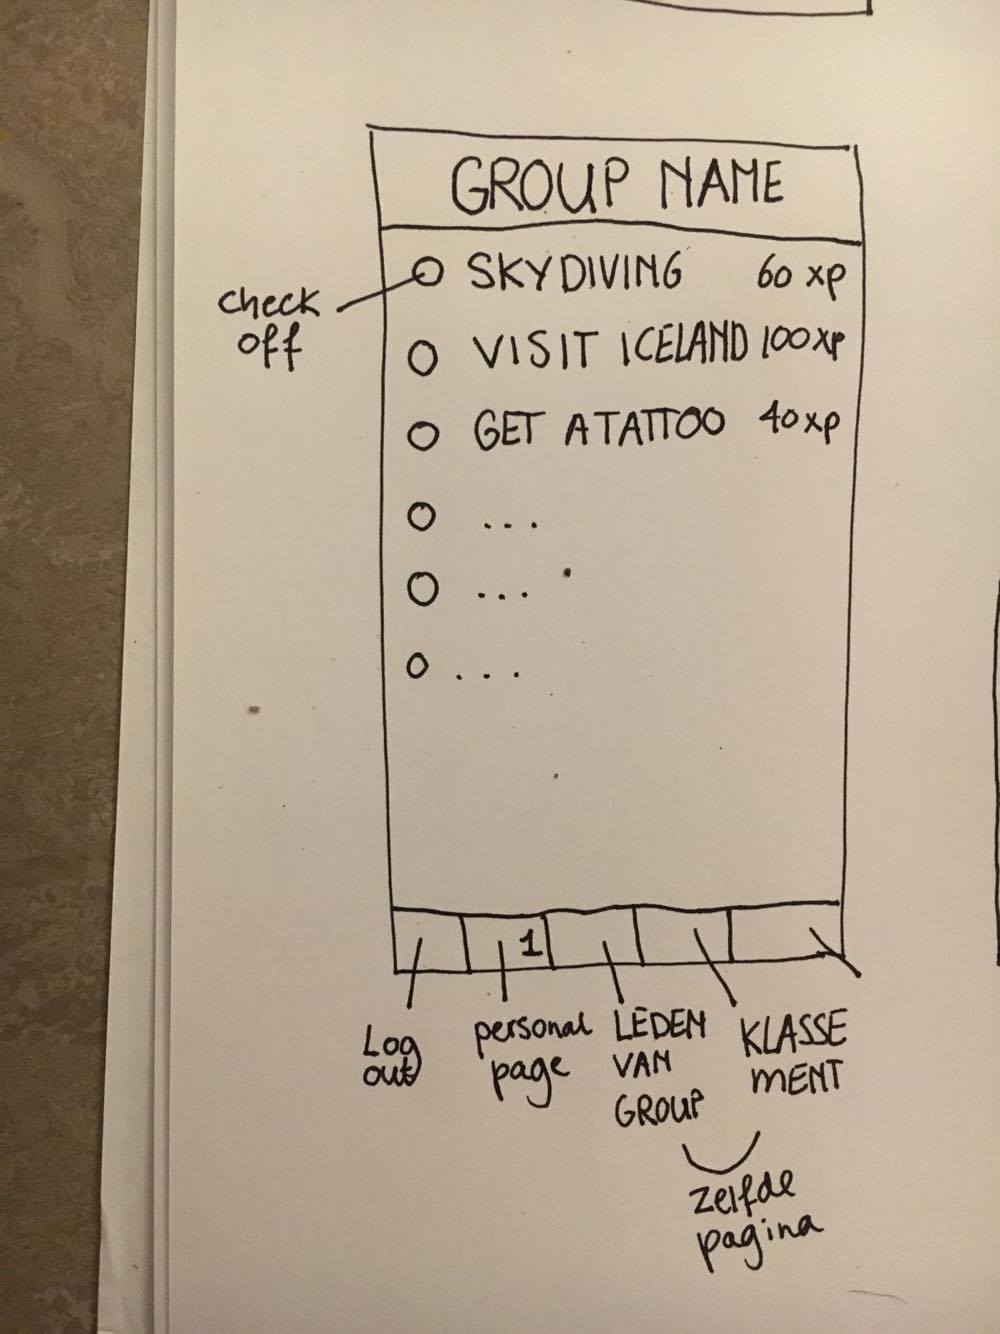 GROUP NAME
SKYDIVING 60 xp
check
off
VISIT ICELAND 100xp
GET A TATTOO 40xp
...
...
...
1
Log
out
personal
page
LEDEN
VAN
GROUP
KLASSE
MENT
zelfde
pagina